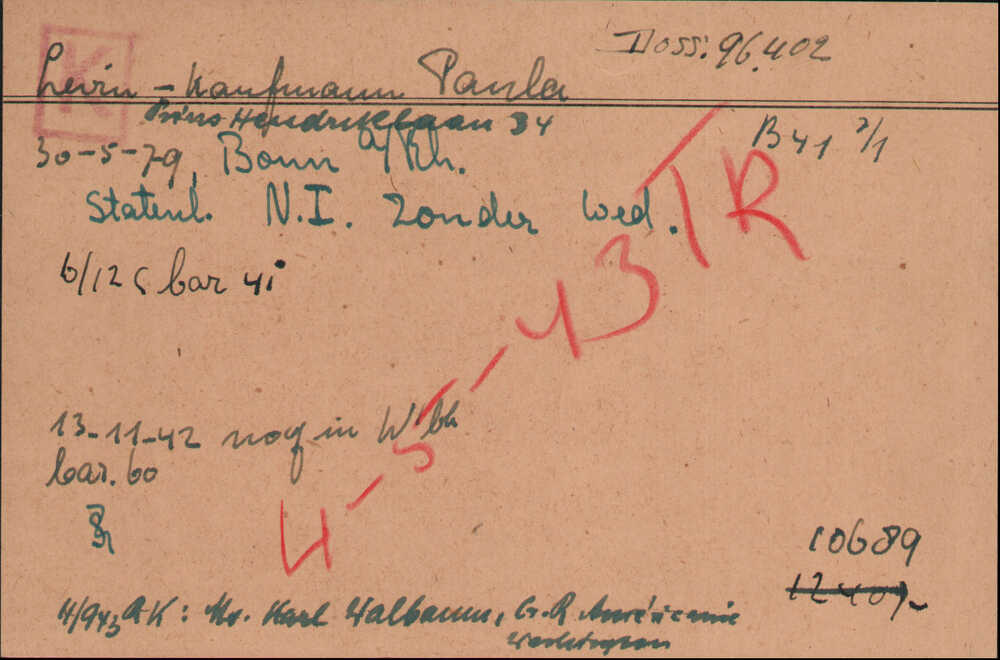 K
Doss: 96.402
Levin - Kaufmann Paula
Prins Hendriklaan 34
B 41 2/1
30-5-79, Bonn a/Rh.
Statenl. N.I. Zonder Wed.
TR
6/12 bar 41
4-5-43
13-11-42 nog in W'bk
bar. 60
10689
12407
4/943 AK: Mr. Karl Walbaum, Am
Washington